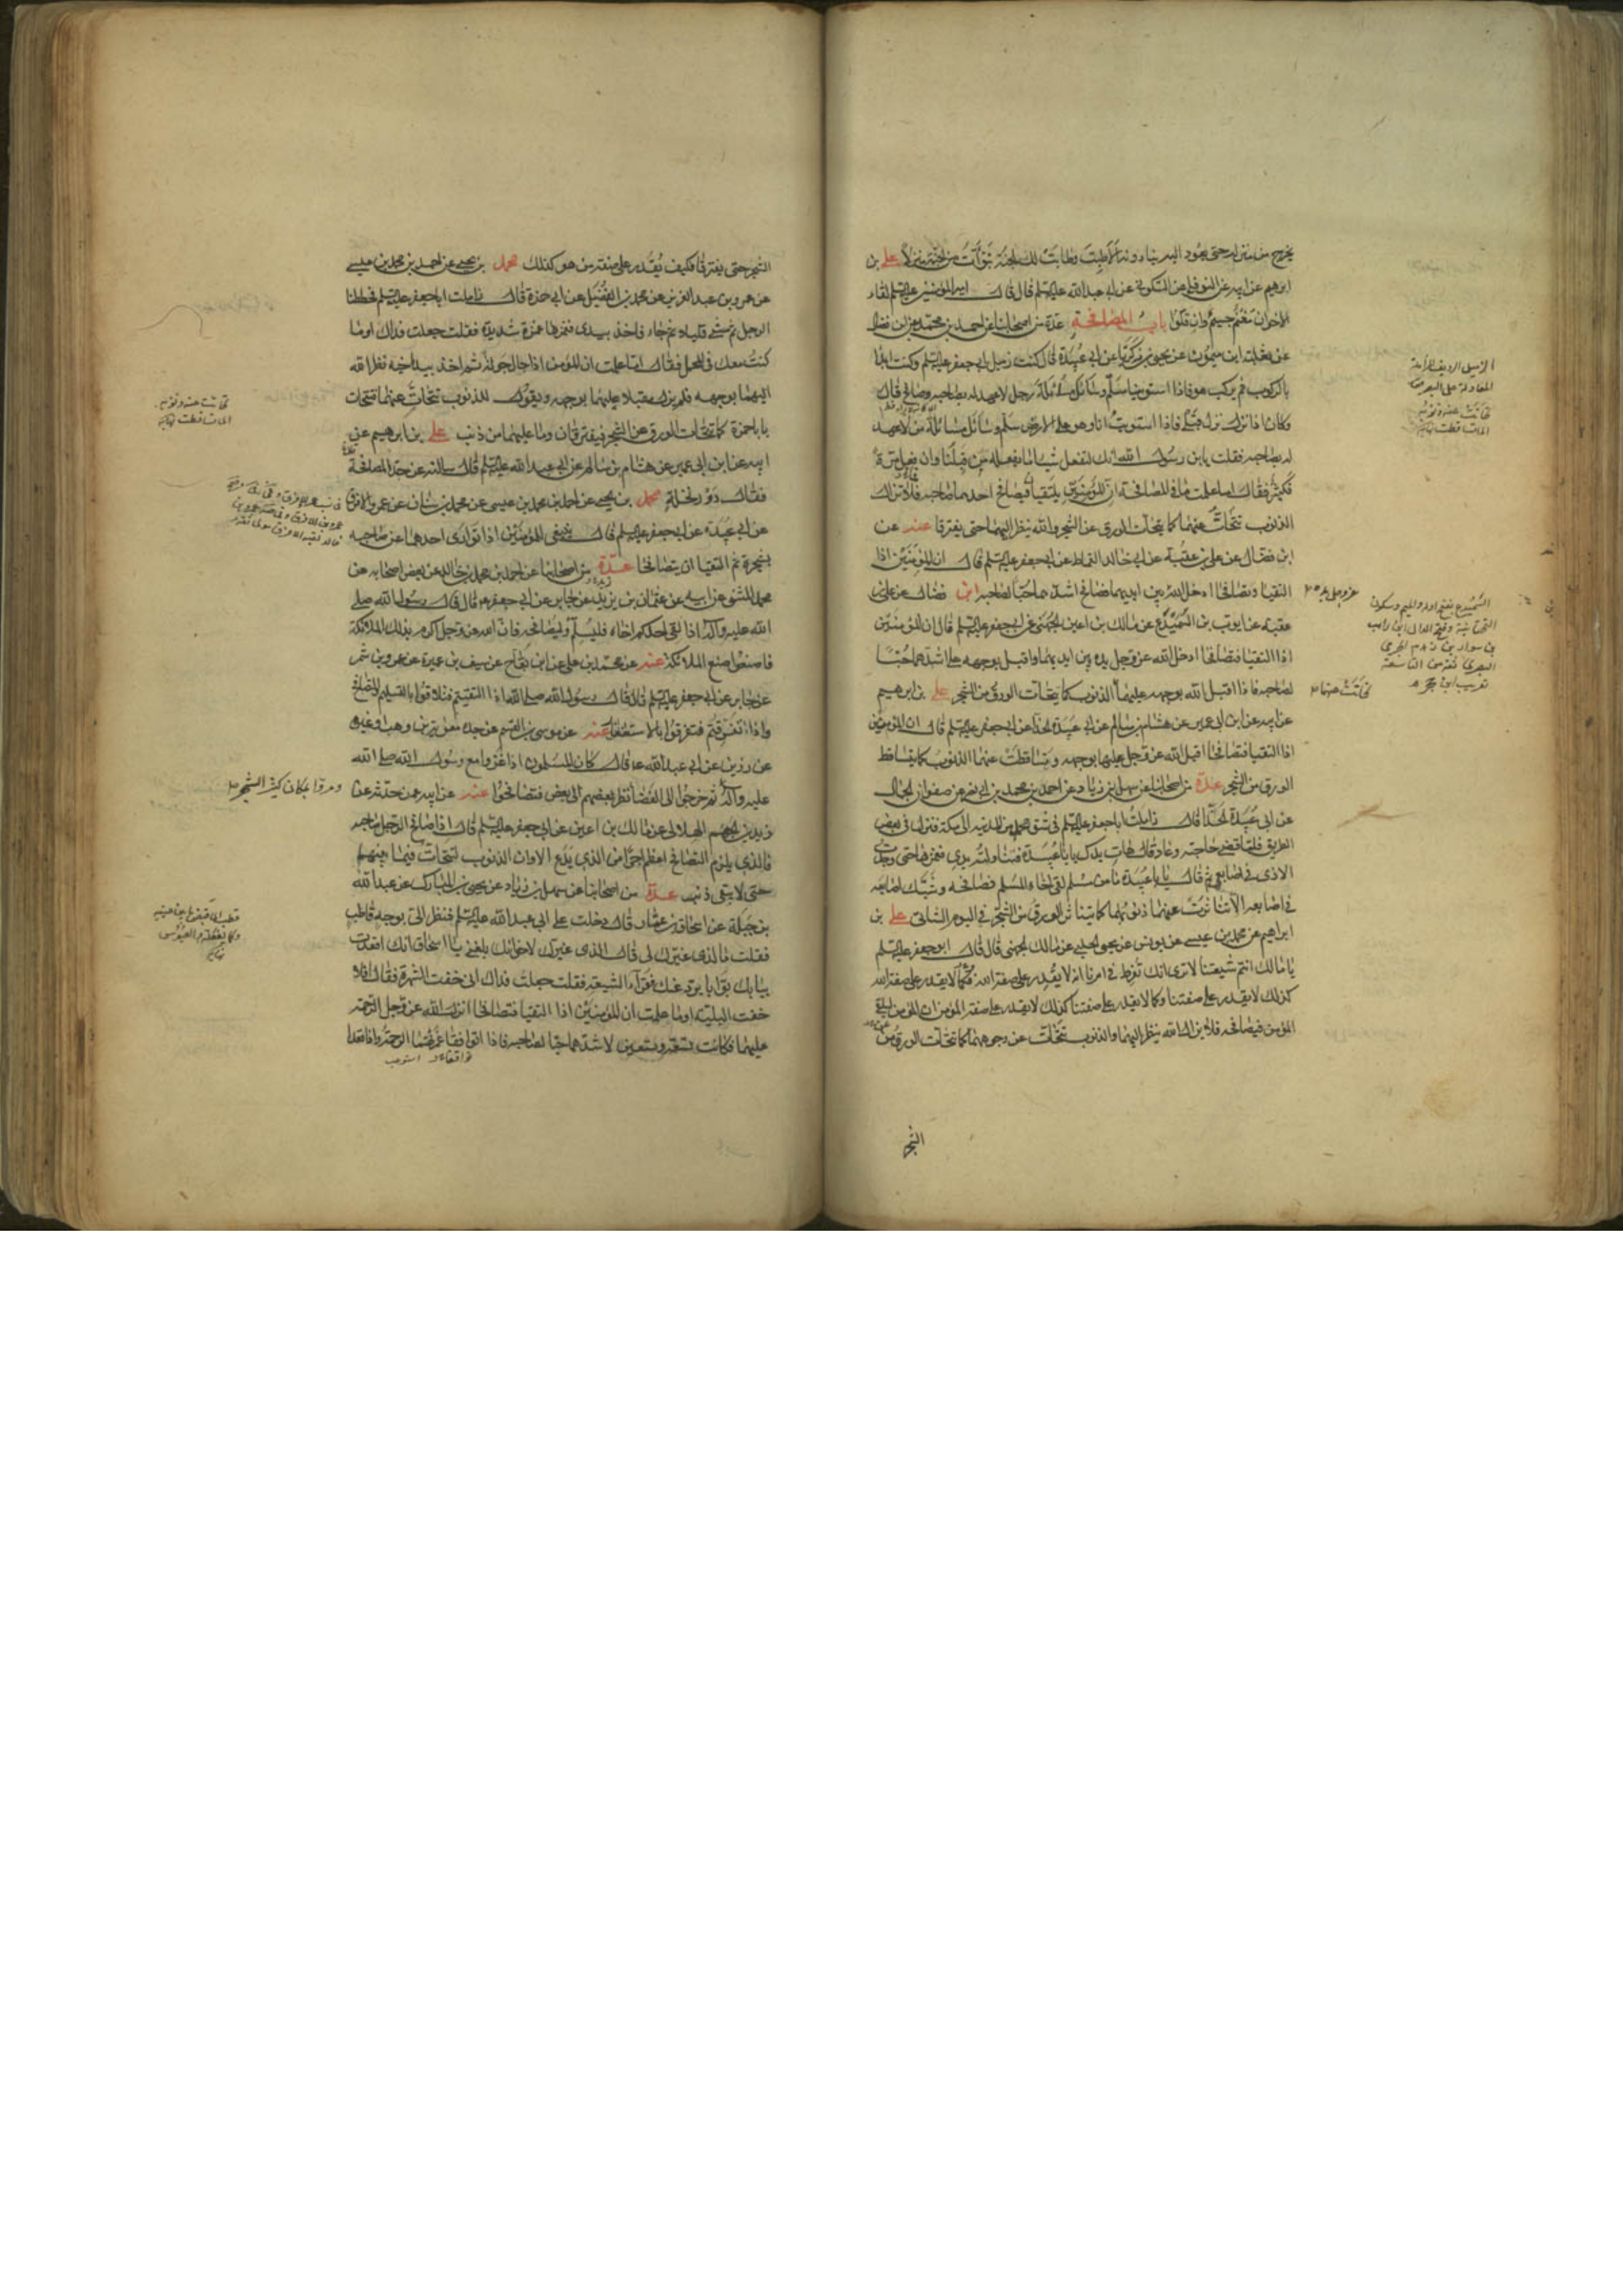 يخرج من منزله حتى يعود اليه ينادونه الا طبت وطابت لك الجنة تبوأت من الجنة منزلا علي بن
ابرهيم عن ابيه عن النوفلي عن السكوني عن ابي عبدالله عليه السلم قال قال امير المؤمنين عليه السلم لقاء
الاخوان مغنم جسيم وان قلوا باب المصافحة عدة من اصحابنا عن احمد بن محمد عن ابن فضال
عن ثعلبة ابن ميمون عن يحيى بن زكريا عن ابي عبيدة قال كنت زميل ابي جعفر عليه السلم وكنت ابدا
بالركوب ثم يركب هو فاذا استوينا سلم وسائل مسائلة رجل لا عهد له بصاحبه وصافح قال
وكان اذا نزل نزل قبلي فاذا استويت انا وهو على الارض سلم وسائل مسائلة من لا عهد
له بصاحبه فقلت يابن رسول الله انك لتفعل شيئا ما يفعله من قبلنا وان فعل مرة
فكثير فقال اما علمت ما في المصافحة ان المؤمنين يلتقيان فيصافح احدهما صاحبه فلا تزال
الذنوب تتحات عنهما كما يتحات الورق عن الشجر والله ينظر اليهما حتى يفترقا عنه عن
ابن فضال عن علي بن عقبة عن ابي خالد القماط عن ابي جعفر عليه السلم قال ان المؤمنين اذا
التقيا وتصافحا ادخل الله بين ايديهما فصافح اشدهما حبا لصاحبه ابن فضال عن علي بن
عقبة عن ايوب بن السميدع عن مالك بن اعين الجهني عن ابي جعفر عليه السلم قال ان المؤمنين
اذا التقيا فتصافحا ادخل الله عز وجل يده بين ايديهما واقبل بوجهه على اشدهما حبا
لصاحبه فاذا اقبل الله بوجهه عليهما الذنوب كما يتحات الورق من الشجر علي بن ابرهيم
عن ابيه عن ابن ابي عمير عن هشام بن سالم عن ابي عبيدة الحذاء عن ابي جعفر عليه السلم قال ان المؤمنين
اذا التقيا فتصافحا اقبل الله عز وجل عليهما بوجهه وتساقطت عنهما الذنوب كما يتساقط
الورق من الشجر عدة من اصحابنا عن سهل ابن زياد عن احمد بن محمد بن ابي نصر عن صفوان الجمال
عن ابي عبيدة الحذاء قال زاملت ابا جعفر عليه السلم في شق محمل من المدينة الى مكة فنزل في بعض
الطريق فلما قضى حاجته وعاد قال هات يدك يا با عبيدة فناولته يدي فغمزها حتى وجدت
الاذى في اصابعي ثم قال يا با عبيدة ما من مسلم لقي اخاه المسلم فصافحه وشبك اصابعه
في اصابعه الا تناثرت عنهما ذنوبهما كما يتناثر الورق من الشجر في اليوم الشاتي علي بن
ابراهيم عن محمد بن عيسى عن يونس عن يحيى الحلبي عن مالك الجهني قال قال ابو جعفر عليه السلم
يا مالك انتم شيعتنا لا ترى انك تفرط في امرنا انه لا يقدر على صفة الله فكما لا يقدر على صفة الله
كذلك لا يقدر على صفتنا وكما لا يقدر على صفتنا كذلك لا يقدر على صفة المؤمن ان المؤمن ليلقى
المؤمن فيصافحه فلا يزال الله ينظر اليهما والذنوب تتحات عن وجوههما كما تتحات الورق من
الشجر
عز وجل يده
تحاتت عنهما
السميدع بفتح اوله والميم وسكون
التحتانية وفتح الدال
الشجر حتى يفترقا فكيف يقدر على صفة من هو كذلك محمد بن يحيى عن احمد بن محمد بن عيسى
عن عمر وبن عبد العزيز عن محمد بن الفضيل عن ابي حمزة قال زاملت ابا جعفر عليه السلم فحططنا
الرحل ثم مشى قليلا ثم جاء فاخذ بيدي فغمزها غمزة شديدة فقلت جعلت فداك اوما
كنت معك في المحمل فقال اما علمت ان المؤمن اذا جال جولة ثم اخذ بيد اخيه نظر الله
اليهما بوجهه فلم يزل مقبلا عليهما بوجهه ويقول للذنوب تتحات عنهما فتتحات
يا باحمزة كما تتحات الورق عن الشجر فيفترقان وما عليهما من ذنب علي بن ابرهيم عن
ابيه عن ابن ابي عمير عن هشام بن سالم عن ابي عبد الله عليه السلم قال سالته عن حد المصافحة
فقال دور نخلة محمد بن يحيى عن احمد بن محمد بن عيسى عن محمد بن سنان عن عمرو الافرق
عن ابي عبيدة عن ابي جعفر عليه السلم قال ينبغي للمؤمنين اذا توارى احدهما عن صاحبه
بشجرة ثم التقيا ان يتصافحا عدة من اصحابنا عن احمد بن محمد بن خالد عن بعض اصحابه عن
محمد المثنى عن ابيه عن عثمان بن يزيد عن جابر عن ابي جعفر قال قال رسول الله صلى
الله عليه وآله اذا لقى احدكم اخاه فليسلم وليصافحه فان الله عز وجل اكرم بذلك الملائكة
فاصنعوا صنع الملائكة عنه عن محمد بن علي عن ابن بقاح عن سيف بن عميرة عن عمرو بن شمر
عن جابر عن ابي جعفر عليه السلم قال قال رسول الله صلى الله اذا التقيتم فتلاقوا بالتسليم والتصافح
واذا تفرقتم فتفرقوا بالاستغفار عنه عن موسى بن القسم عن جده معوية بن وهب او غيره
عن رزين عن ابي عبد الله ع قال كان المسلمون اذا غزوا مع رسول الله صلى الله
عليه وآله ثم خرجوا الى الفضا نظر بعضهم الى بعض فتصافحوا عنه عن ابيه عمن حدثه عن
زيد بن الجهم الهلالي عن مالك بن اعين عن ابي جعفر عليه السلم قال اذا صافح الرجل صاحبه
فالذي يلزم التصافح اعظم اجرا من الذي يدع الا وان الذنوب لتتحات فيما بينهم
حتى لا يبقى ذنب عدة من اصحابنا عن سهل بن زياد عن يحيى بن المبارك عن عبد الله
بن جبلة عن اسحاق بن عمار قال دخلت على ابي عبد الله عليه السلم فنظر الي بوجه قاطب
فقلت ما الذي غيرك لي قال الذي غيرك لاخوانك بلغني يا اسحاق انك اقعدت
ببابك بوابا يرد عنك فقراء الشيعة فقلت جعلت فداك اني خفت الشهرة فقال افلا
خفت البلية اوما علمت ان المؤمنين اذا التقيا فتصافحا انزل الله عز وجل الرحمة
عليهما فكانت تسعة وتسعين لاشدهما حبا لصاحبه فاذا توافقا غمرتهما الرحمة واذا قعدا
ومروا بمكان كثير الشجر